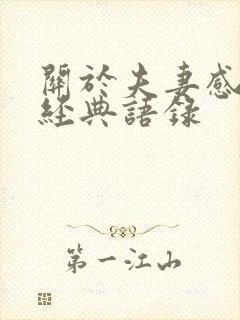 關於夫妻感
經典語錄
第一江山